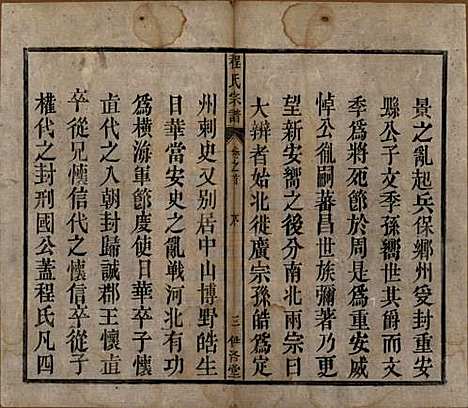 景之亂起兵保鄉州受封重安
縣公子文季孫嚮世其爵而文
季爲將死節於周是爲重安威
悼公胤嗣蕃昌世族彌著乃更
望新安嚮之後分南北兩宗曰
大辨者始北徙廣宗孫皓爲定
程氏宗譜
卷之首
三
州刺史又別居中山博野皓生
日華當安史之亂戰河北有功
爲橫海軍節度使日華卒子懷
直代之入朝封歸誠郡王懷直
卒從兄懷信代之懷信卒從子
權代之封邢國公蓋程氏凡四